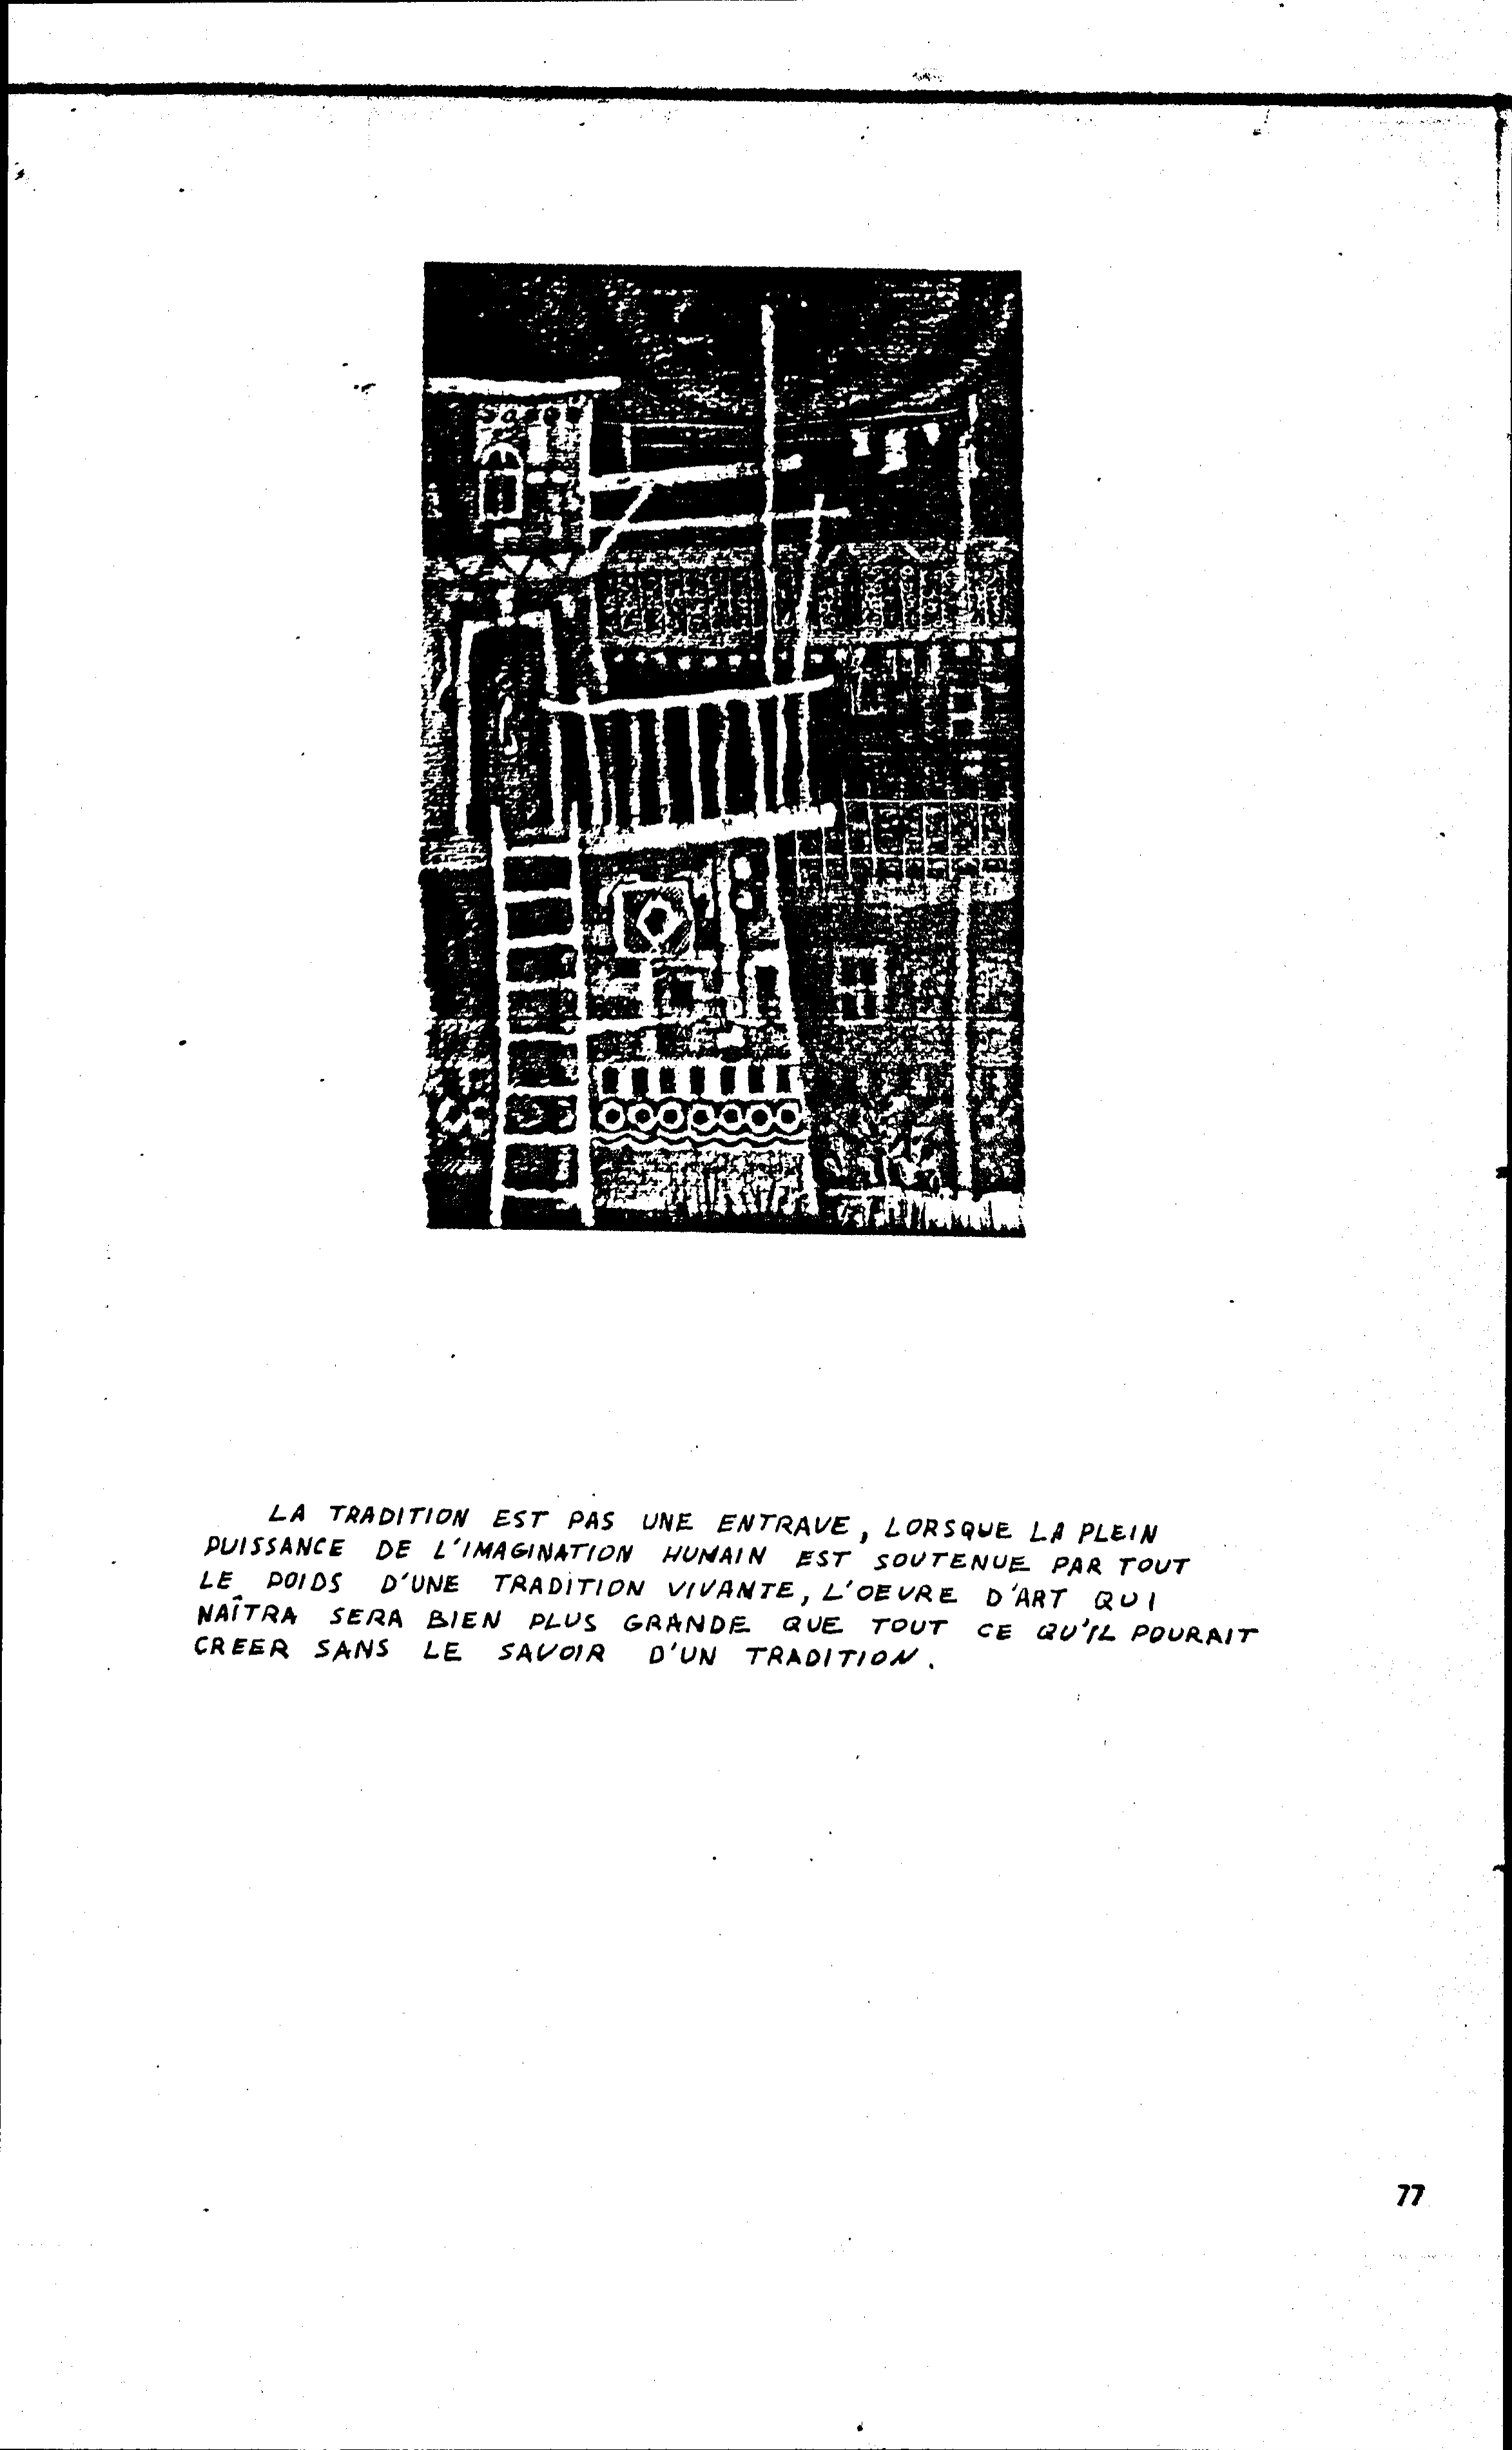 LA TRADITION EST PAS UNE ENTRAVE, LORSQUE LA PLEIN
PUISSANCE DE L'IMAGINATION HUMAIN EST SOUTENUE PAR TOUT
LE POIDS D'UNE TRADITION VIVANTE, L'OEVRE D'ART QUI
NAÎTRA SERA BIEN PLUS GRANDE QUE TOUT CE QU'IL POURAIT
CREER SANS LE SAVOIR D'UN TRADITION.
77